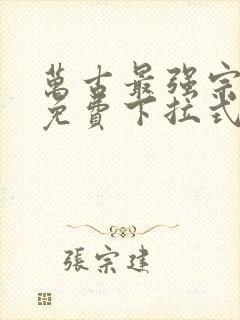 萬古最强宗
免費下拉式
張宗建